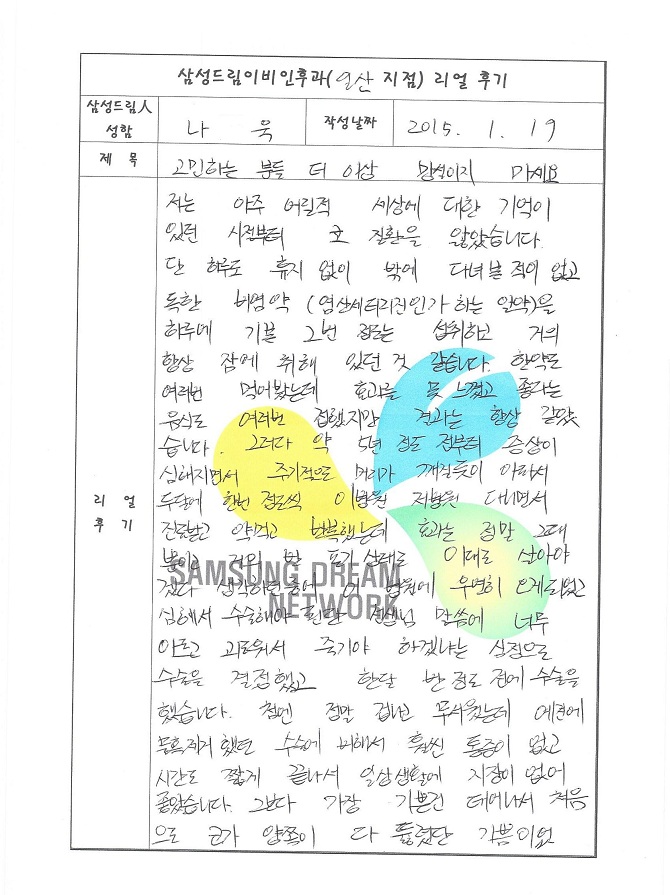 삼성드림이비인후과(일산 지점) 리얼 후기
삼성드림人 성함
나 욱
작성날짜
2015. 1. 19
제 목
고민하는 분들 더 이상 망설이지 마세요
리 얼
후 기
저는 아주 어릴적 세상에 대한 기억이
있던 시점부터 코 질환을 앓았습니다.
단 하루도 휴지 없이 밖에 다녀본 적이 없고
독한 비염약 (염산세티리진인가 하는 알약)을
하루에 기본 2번 정도는 섭취하고 거의
항상 잠에 취해 있던 것 같습니다. 한약도
여러번 먹어봤는데 효과를 못 느꼈고 좋다는
음식도 여러번 접했지만 결과는 항상 같았
습니다. 그러다 약 5년 정도 전부터 증상이
심해지면서 주기적으로 머리가 깨질듯이 아파서
두달에 한번 정도씩 이병원 저병원 다니면서
진료받고 약먹고 반복했는데 효과는 정말 그때
뿐이고 거의 반 포기 상태로 이대로 살아야
겠다 생각하던중에 이 병원에 우연히 오게되었고
심해서 수술해야 된단 선생님 말씀에 너무
아프고 괴로워서 죽기야 하겠냐는 심정으로
수술을 결정했고 한달 반 정도 전에 수술을
했습니다. 첨엔 정말 겁나고 무서웠는데 예전에
물혹제거 했던 수술에 비해서 훨씬 통증이 없고
시간도 짧게 끝나서 일상생활에 지장이 없어
좋았습니다. 그보다 가장 기쁜건 태어나서 처음
으로 코가 양쪽이 다 뚫렸단 기쁨이었
SAMSUNG DREAM
NETWORK